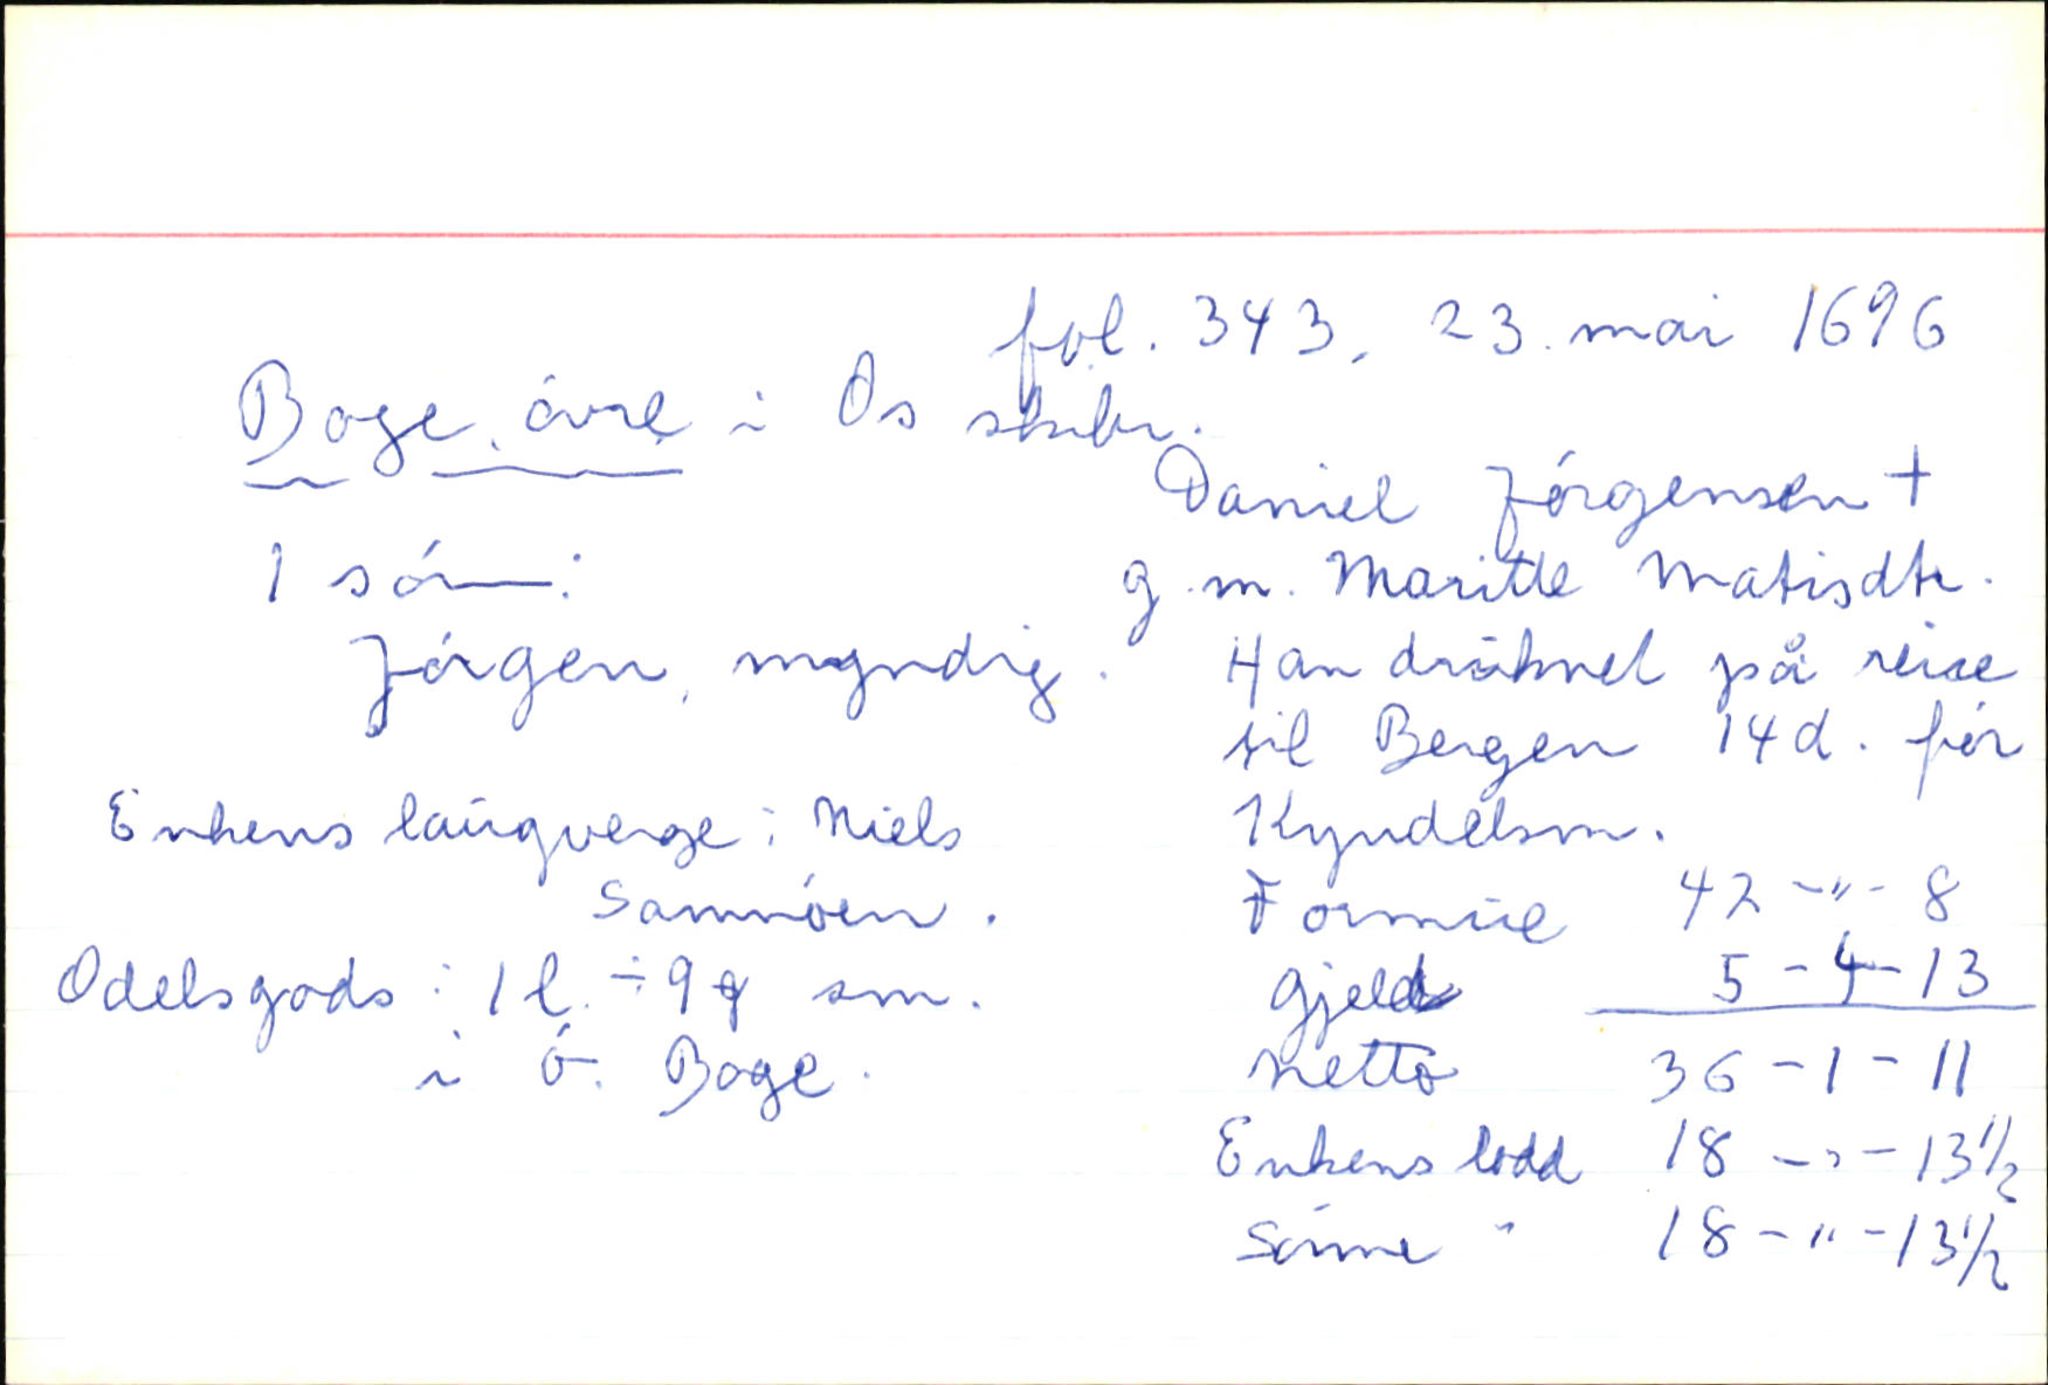 fol. 343, 23. mai 1696
Boge, óvre i Os skibr.
Daniel Jórgensen †
g.m. Maritte Matisdtr.
Han druknet på reise
til Bergen 14d. fór
Kyndelsm.
1 són:
Jórgen, myndig.
Enkens laugverge: Niels
Samnóen.
Odelsgods: 1 l. ÷ 9 sm.
i ó. Boge.
Formue 42 - " - 8
Gjeld 5 - 4 - 13
Netto 36 - 1 - 11
Enkens lodd 18 - " - 13 1/2
Sónne " 18 - " - 13 1/2